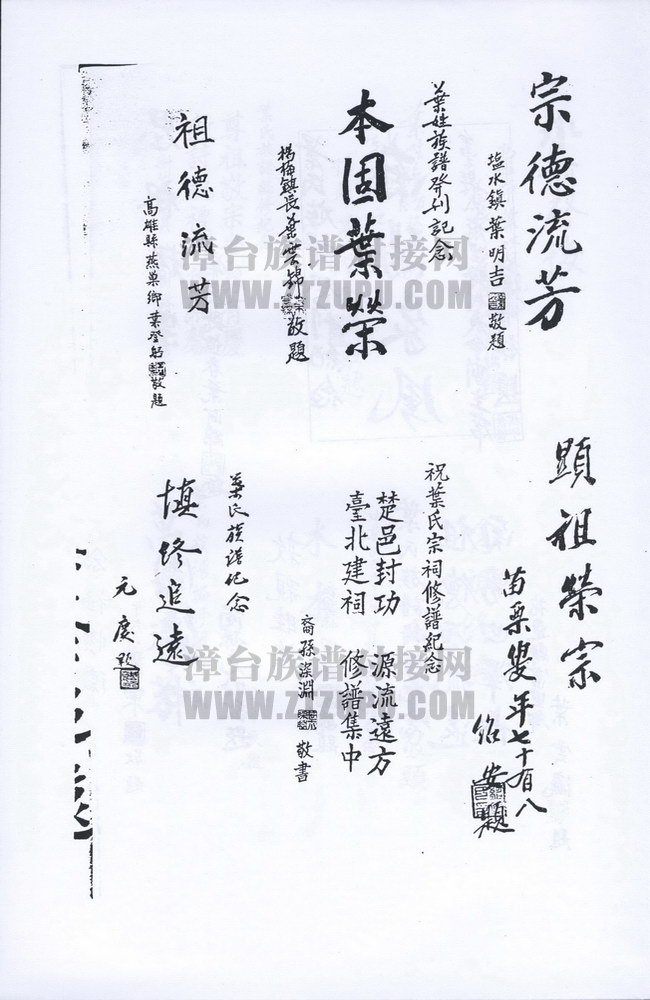 宗德流芳
塩水鎮葉明吉
敬題
葉姓族譜發刊記念
本固葉榮
楊梅鎮長葉雲錦
敬題
祖德流芳
高雄縣燕巢鄉葉登
敬題
顯祖榮宗
苗栗叟年七十有八
紹安題
祝葉氏宗祠修譜紀念
楚邑封功 源流遠方
臺北建祠 修譜集中
裔孫深淵
敬書
葉氏族譜紀念
慎終追遠
元慶題
漳台族谱对接网
WWW.ZTZUPU.COM
漳台族谱对接网
WWW.ZTZUPU.COM